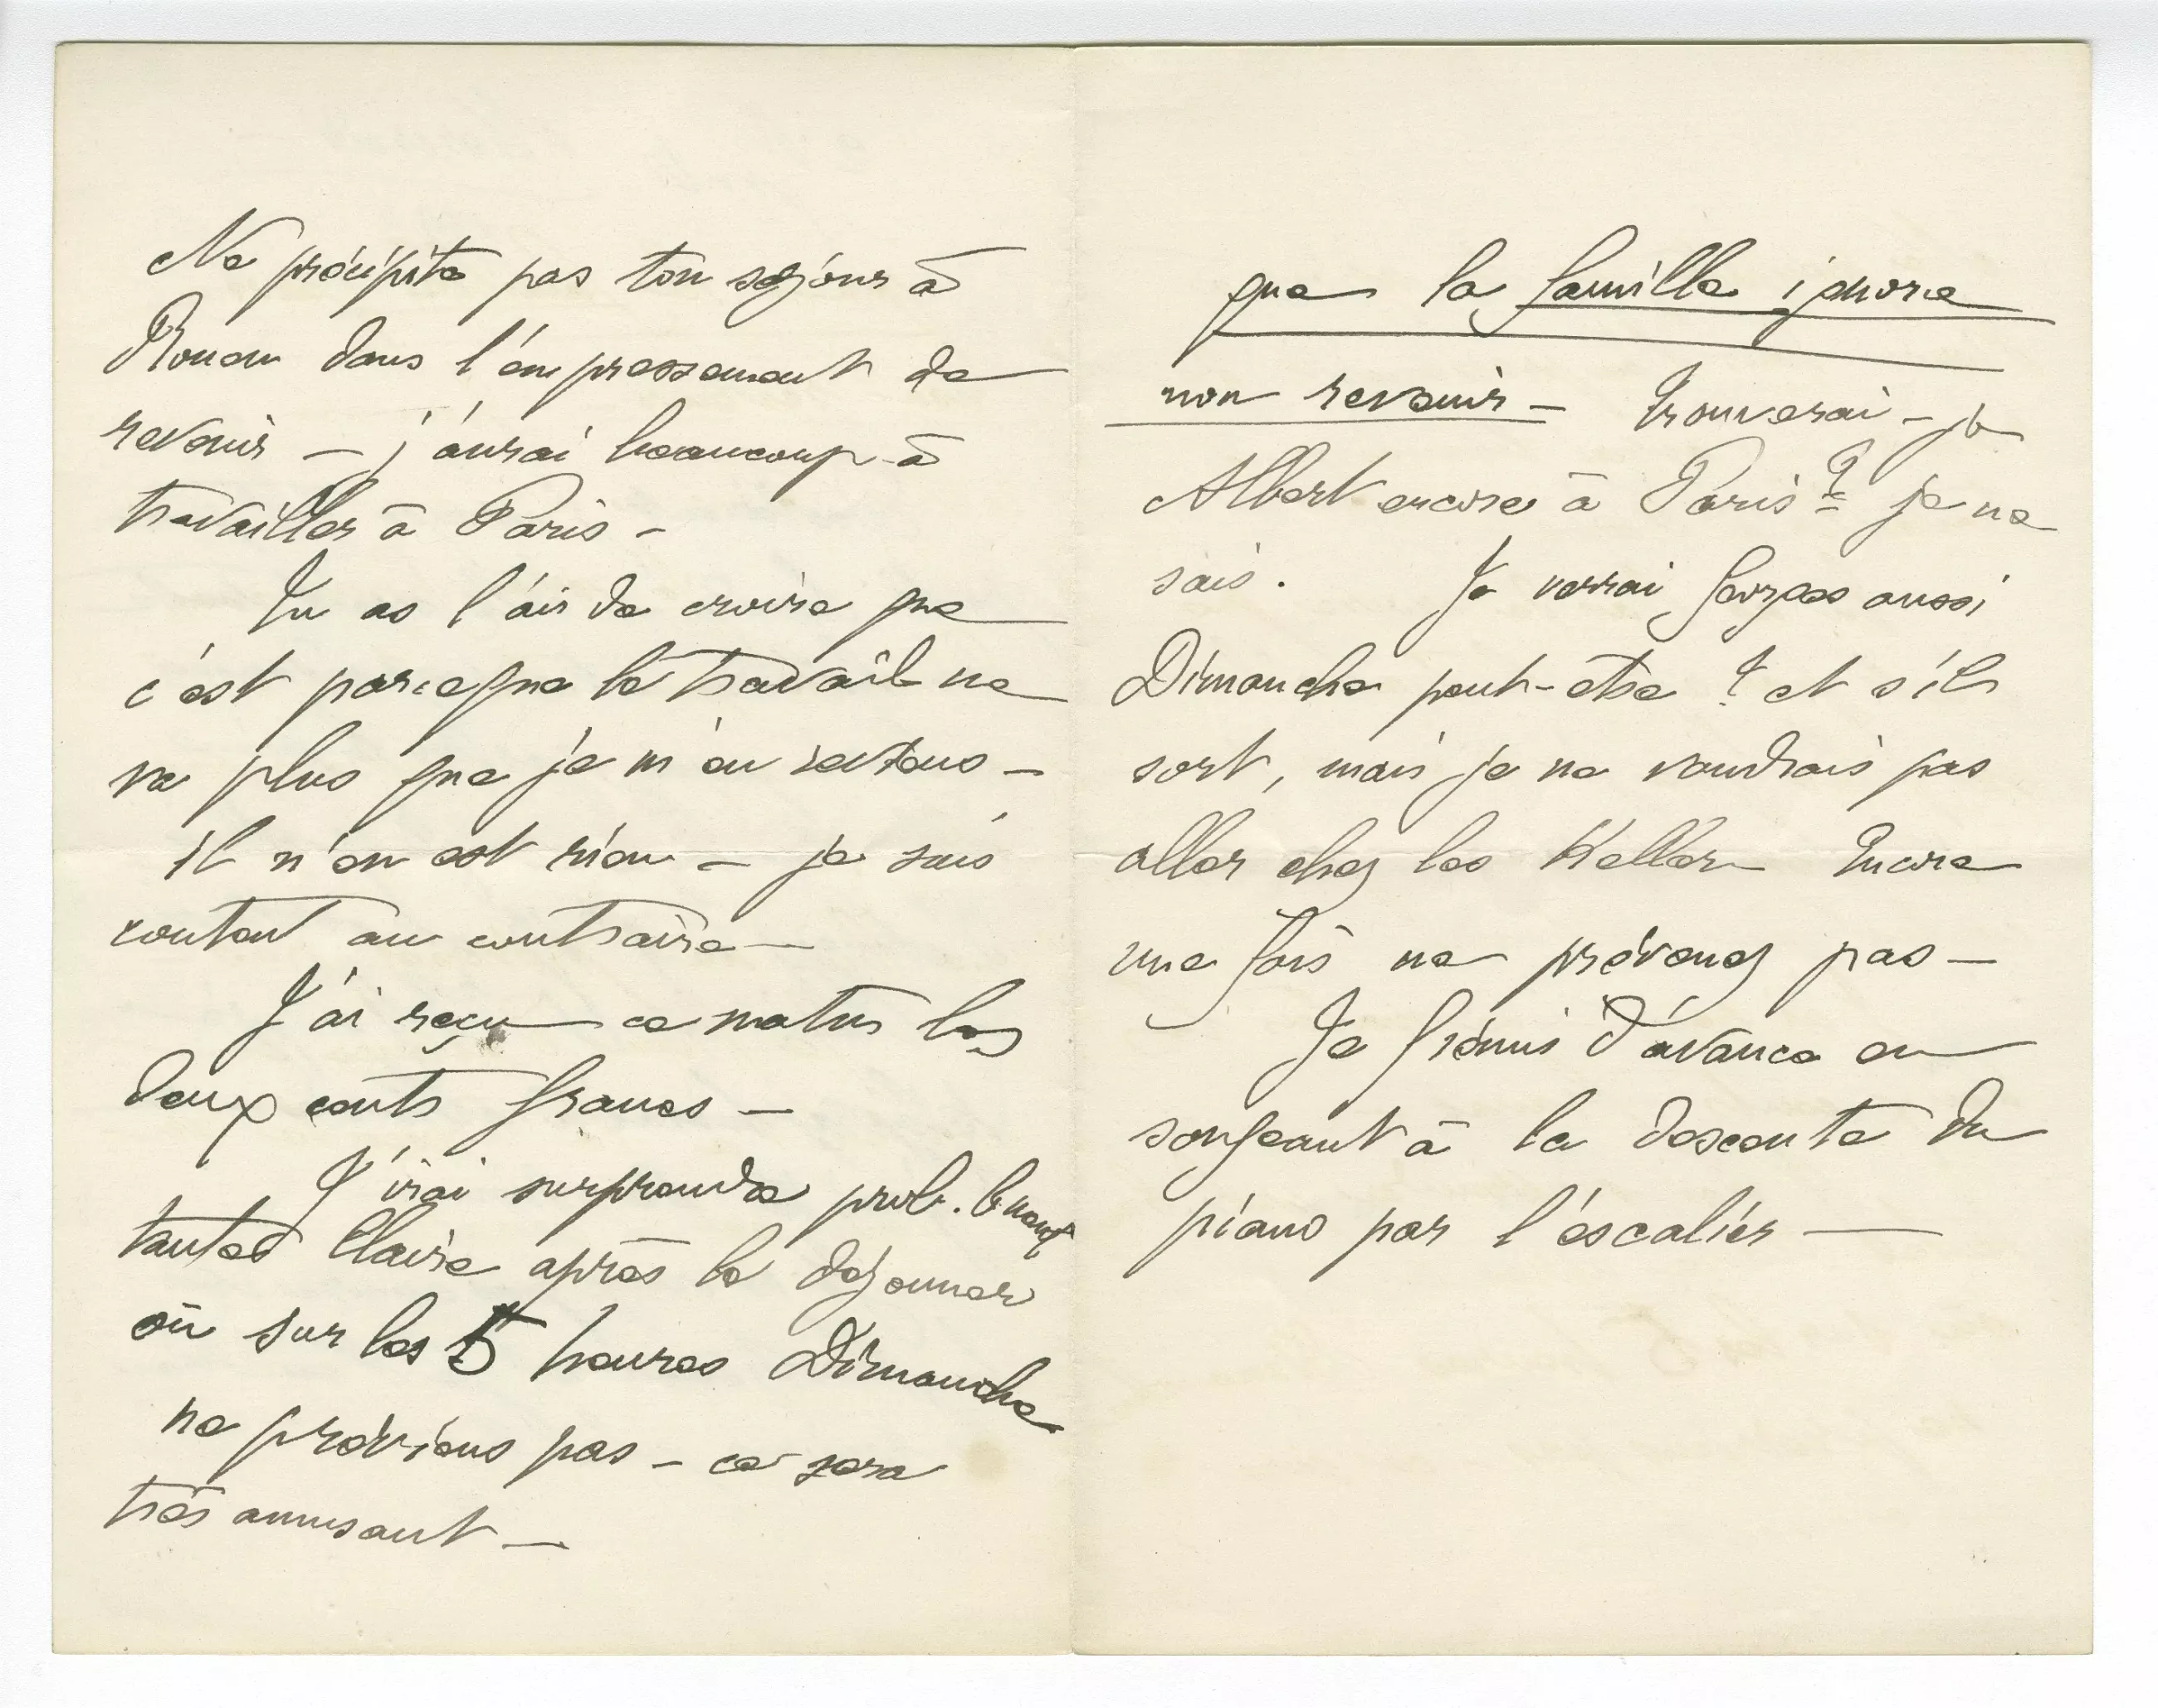 Ne précipite pas ton séjour à
Rouen dans l'empressement de
revenir – j'aurai beaucoup à
travailler à Paris –
Tu as l'air de croire que
c'est parceque le travail ne
va plus que je m'en
il n'en est rien – je suis
content au contraire –
J'ai reçu ce matin les
deux cents francs –
J'irai surprendre prob.
tantes Claire après le déjeuner
ou sur les 5 heures Dimanche
ne préviens pas – ce sera
très amusant –
que la famille ignore
mon revenir – Trouverai-je
Albert encore à Paris? je ne
sais. Je verrai Georges aussi
Dimanche peut-être? et s'il
sort, mais je ne voudrais pas
aller chez les Keller Encore
une fois ne prévenez pas –
Je frémis d'avance en
songeant à la descente du
piano par l'escalier –